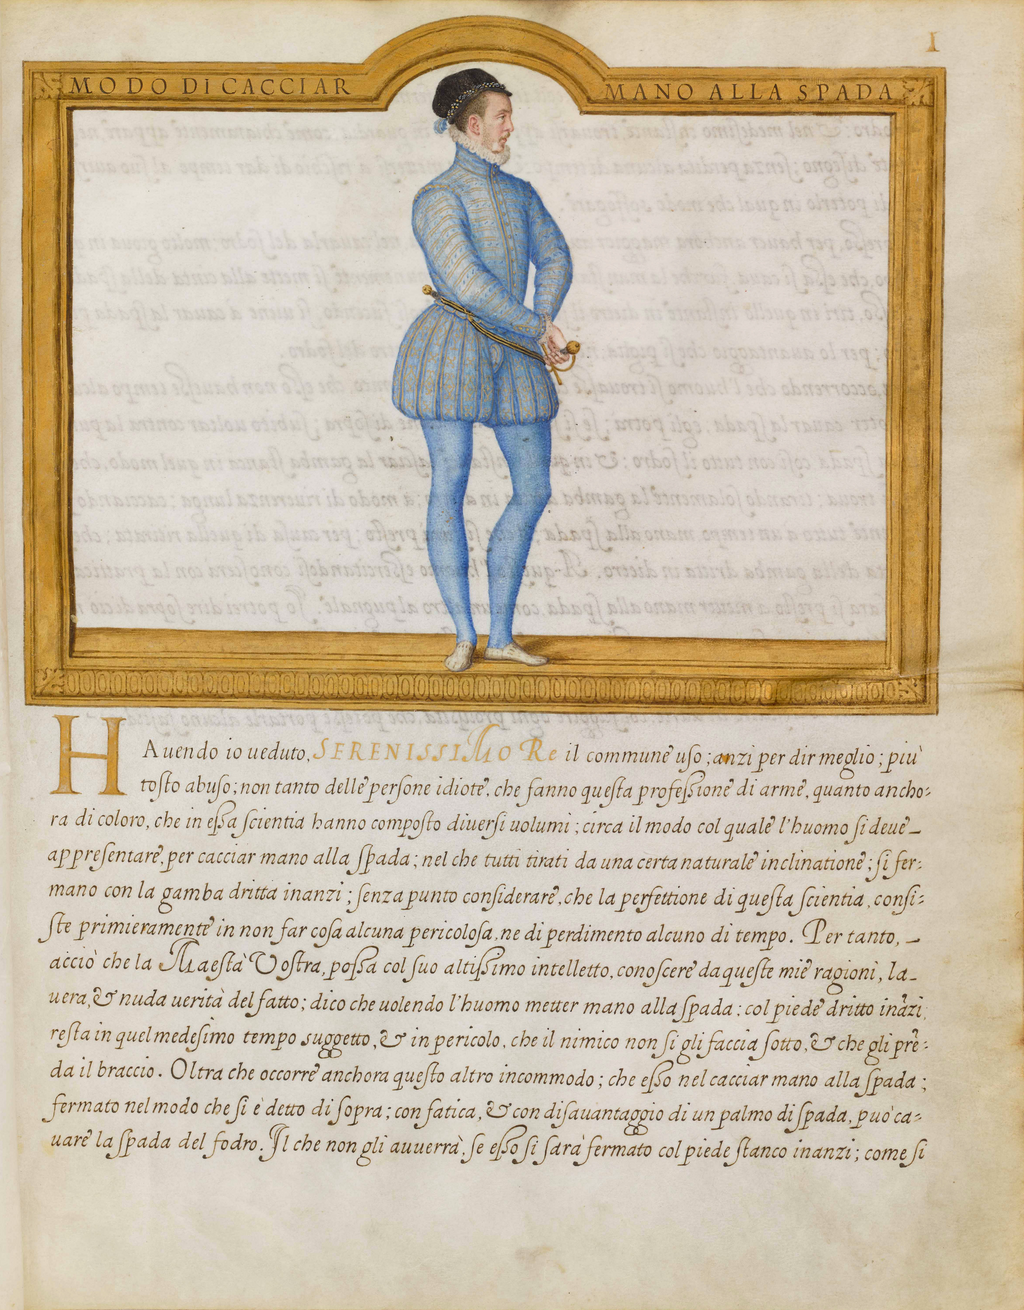 1
MODO DI CACCIAR MANO ALLA SPADA
HAuendo io ueduto, SERENISSIMO Re il commune uso; anzi per dir meglio; più
tosto abuso; non tanto delle persone idiote, che fanno questa professione di arme, quanto ancho-
ra di coloro, che in essa scientia hanno composto diuersi uolumi; circa il modo col quale l'huomo si deue
appresentare, per cacciar mano alla spada; nel che tutti tirati da una certa naturale inclinatione; si fer-
mano con la gamba dritta inanzi; senza punto considerare, che la perfettione di questa scientia, consi-
ste primieramente in non far cosa alcuna pericolosa, ne di perdimento alcuno di tempo. Per tanto,
acciò che la Maestà Vostra, possa col suo altissimo intelletto, conoscere da queste mie ragioni, la
uera, & nuda uerità del fatto; dico che uolendo l'huomo metter mano alla spada; col piede dritto inãzi;
resta in quel medesimo tempo suggetto, & in pericolo, che il nimico non si gli faccia sotto, & che gli pre-
da il braccio. Oltra che occorre anchora questo altro incommodo; che esso nel cacciar mano alla spada;
fermato nel modo che si è detto di sopra; con fatica, & con disauantaggio di un palmo di spada, può ca-
uare la spada del fodro. Il che non gli auuerrà, se esso si sarà fermato col piede stanco inanzi; come si